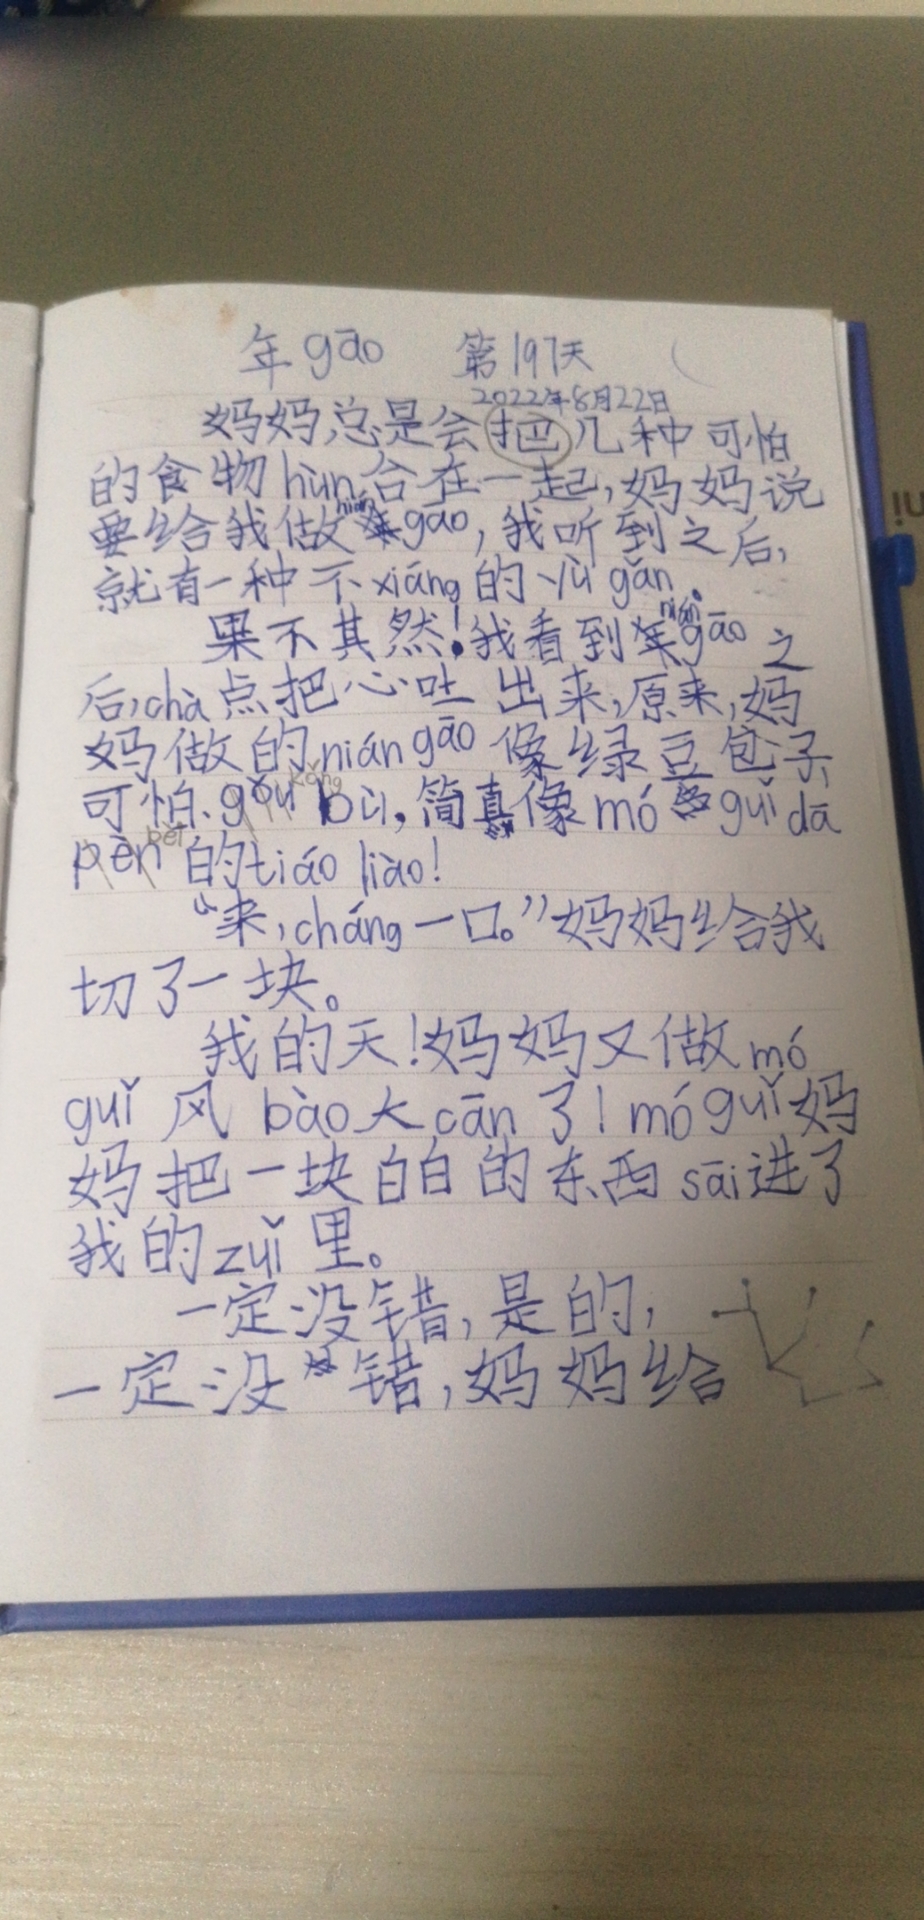 年gāo 第197天
2022年8月22日
妈妈总是会把几种可怕
的食物hùn合在一起,妈妈说
要给我做niángāo,我听到之后,
就有一种不xiáng的yù gǎn.
果不其然!我看到niángāo之
后,chà点把心吐出来,原来,妈
妈做的niángāo像绿豆包子,
可怕、gǒu bù,简真像mó guǐ dā
kǒng
pèn的tiáo liào!
pèi
“来,cháng一口。”妈妈给我
切了一块。
我的天!妈妈又做mó
guǐ风bào大cān了!mó guǐ妈
妈把一块白白的东西sāi进了
我的zuǐ里。
一定没错,是的,
一定没错,妈妈给